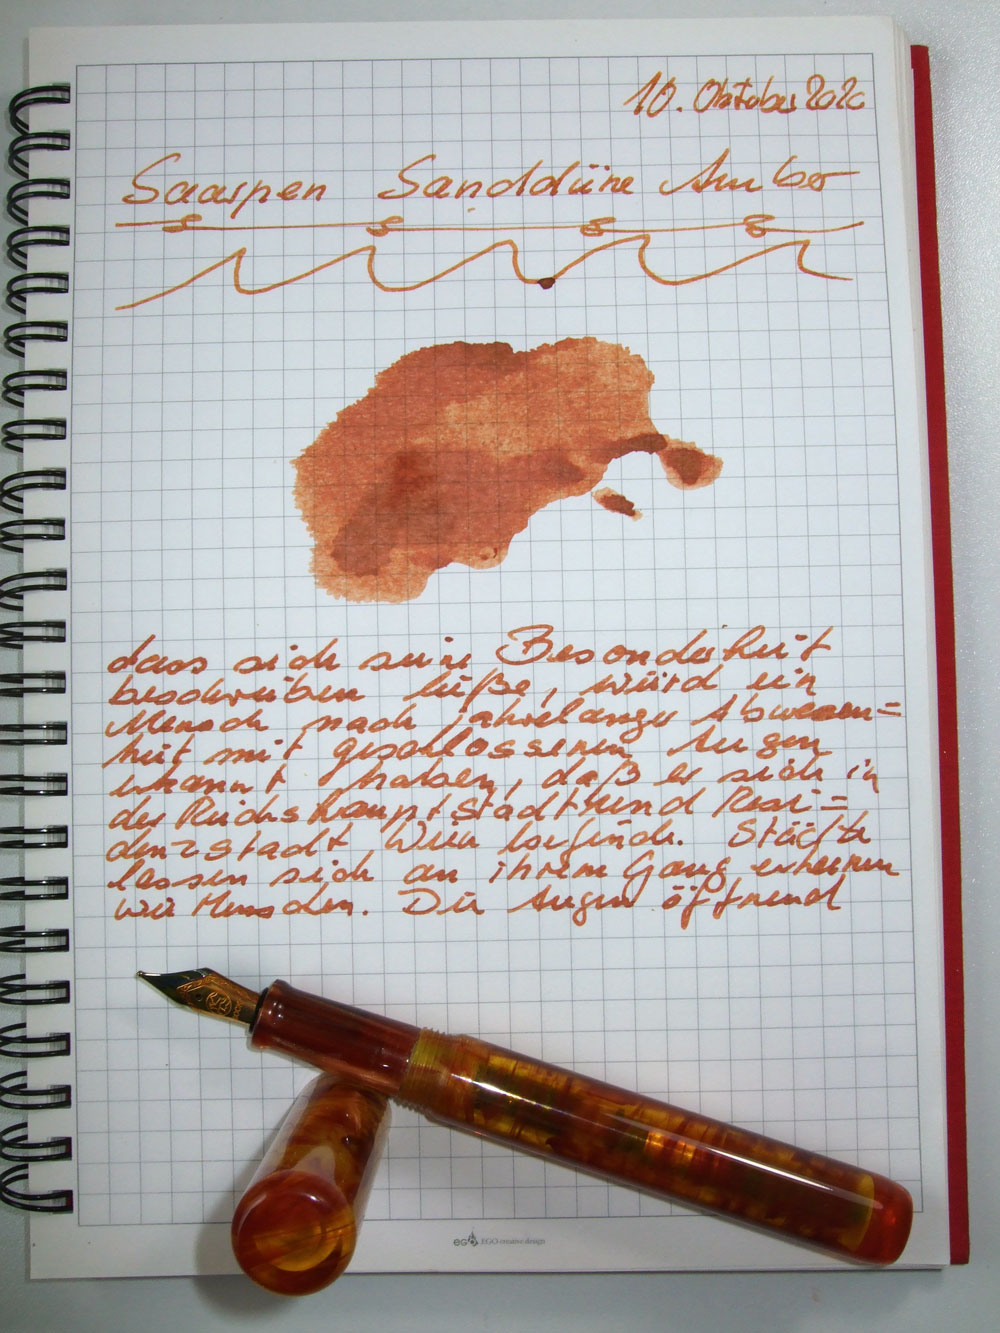 10. Oktober 2020
Saarpen Sanddüne Amber
dass sich seine Besonderheit
beschreiben ließe, würd ein
Mensch nach jahrelanger Abwesen=
heit mit geschlossenen Augen
erkannt haben, daß er sich in
der Reichshauptstadt und Resi=
denzstadt Wien befinde. Städte
lassen sich an ihrem Gang erkennen
wie Menschen. Die Augen öffnend
EGO EGO-creative design